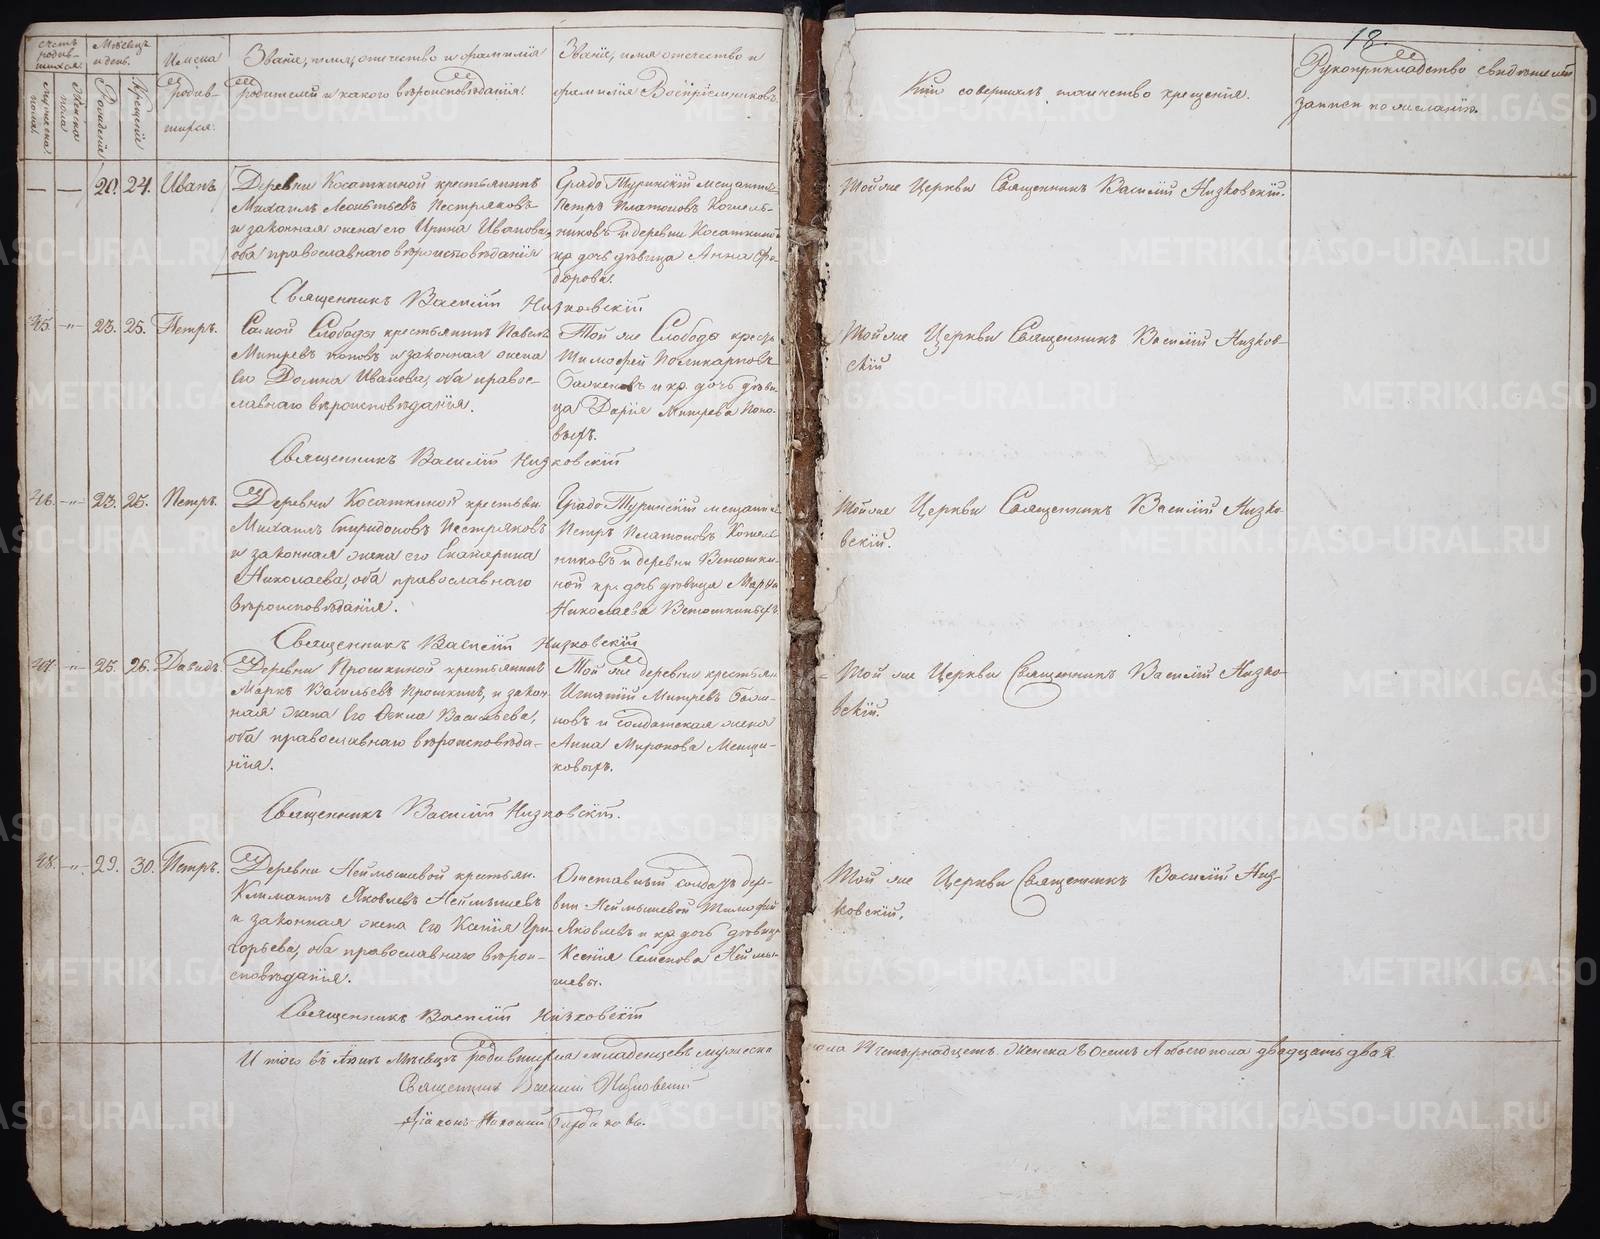 18.
счетъ родив-
шихся.
Мѣсяцъ
и день.
Имена
родив-
шихся.
Званіе, имя, отечество и фамилія
родителей и какого вѣроисповѣданія.
Званіе, имя отечество и
фамилія Воспріемниковъ
Кто совершалъ таинство крещенія.
Рукоприкладство свидѣтелей
записи по желанію.
мужеска пола.
Женска пола
Рожденія
Крещенія
— — 20. 24. Иванъ
Деревни Косаткиной крестьянинъ
Михаилъ Леонтьевъ Пестряковъ
и законная жена его Ирина Иванова,
оба православнаго вѣроисповѣданія
Градо Туринскій мещанинъ
Петръ Платоновъ Котель-
никовъ и деревни Косаткиной
кр. дочь дѣвица Анна Фе-
дорова.
Тойже Церкви Священникъ Василій Низковскій.
Священникъ Василій Низковскій
45. -"- 23. 25. Петръ.
Самой Слободы крестьянинъ Павелъ
Митревъ Поповъ и законная жена
Его Домна Иванова, оба правос-
лавнаго вѣроисповѣданія.
Той же Слободы крест.
Тимофей Поликарповъ
и кр. дочь дѣви-
ца Дарія Митрева Попо-
выхъ.
Тойже Церкви Священникъ Василій Низков-
скій
Священникъ Василій Низковскій
46. -"- 23. 25. Петръ.
Деревни Косаткиной крестьян.
Михаилъ Спиридоновъ Пестряковъ
и законная жена его Екатерина
Николаева, оба православнаго
вѣроисповѣданія.
Градо Туринскій мещанинъ
Петръ Платоновъ Котель-
никовъ и деревни Ветошки-
ной кр. дочь дѣвица Марья
Николаева Ветошкиныхъ.
Тойже Церкви Священникъ Василій Низко-
вскій.
Священникъ Василій Низковскій
47. -"- 25. 26. Давидъ.
Деревни Прошкиной крестьянинъ
Маркъ Васильевъ Прошкинъ, и закон-
ная жена Его Фекла Васильева,
оба православнаго вѣроисповѣда-
нія.
Той же деревни крестьян.
Игнатій Митревъ
и солдатская жена
Анна Миронова Менщи-
ковыхъ.
Той же Церкви Священникъ Василій Низко-
вскій.
Священникъ Василій Низковскій.
48. -"- 29. 30. Петръ.
Деревни Неймышевой крестьян.
Климантъ Яковлевъ Неймышевъ
и законная жена Его Ксенія Гри-
горьева, оба православнаго вѣрои-
сповѣданія.
Отставный солдатъ дер-
вни Неймышевой Тимофей
Яковлевъ и кр. дочь дѣвица
Ксенія Семенова Неймы-
шевы.
Той же Церкви Священникъ Василій Низ-
ковскій.
Священникъ Василій Низковскій
И того въ Іюнѣ Мѣсяцѣ родившихся младенцевъ мужеска пола 14 четырнадцать Женска 8 Осемь А обоего пола двадцать два 2
Священникъ Василій Низковскій
Діаконъ